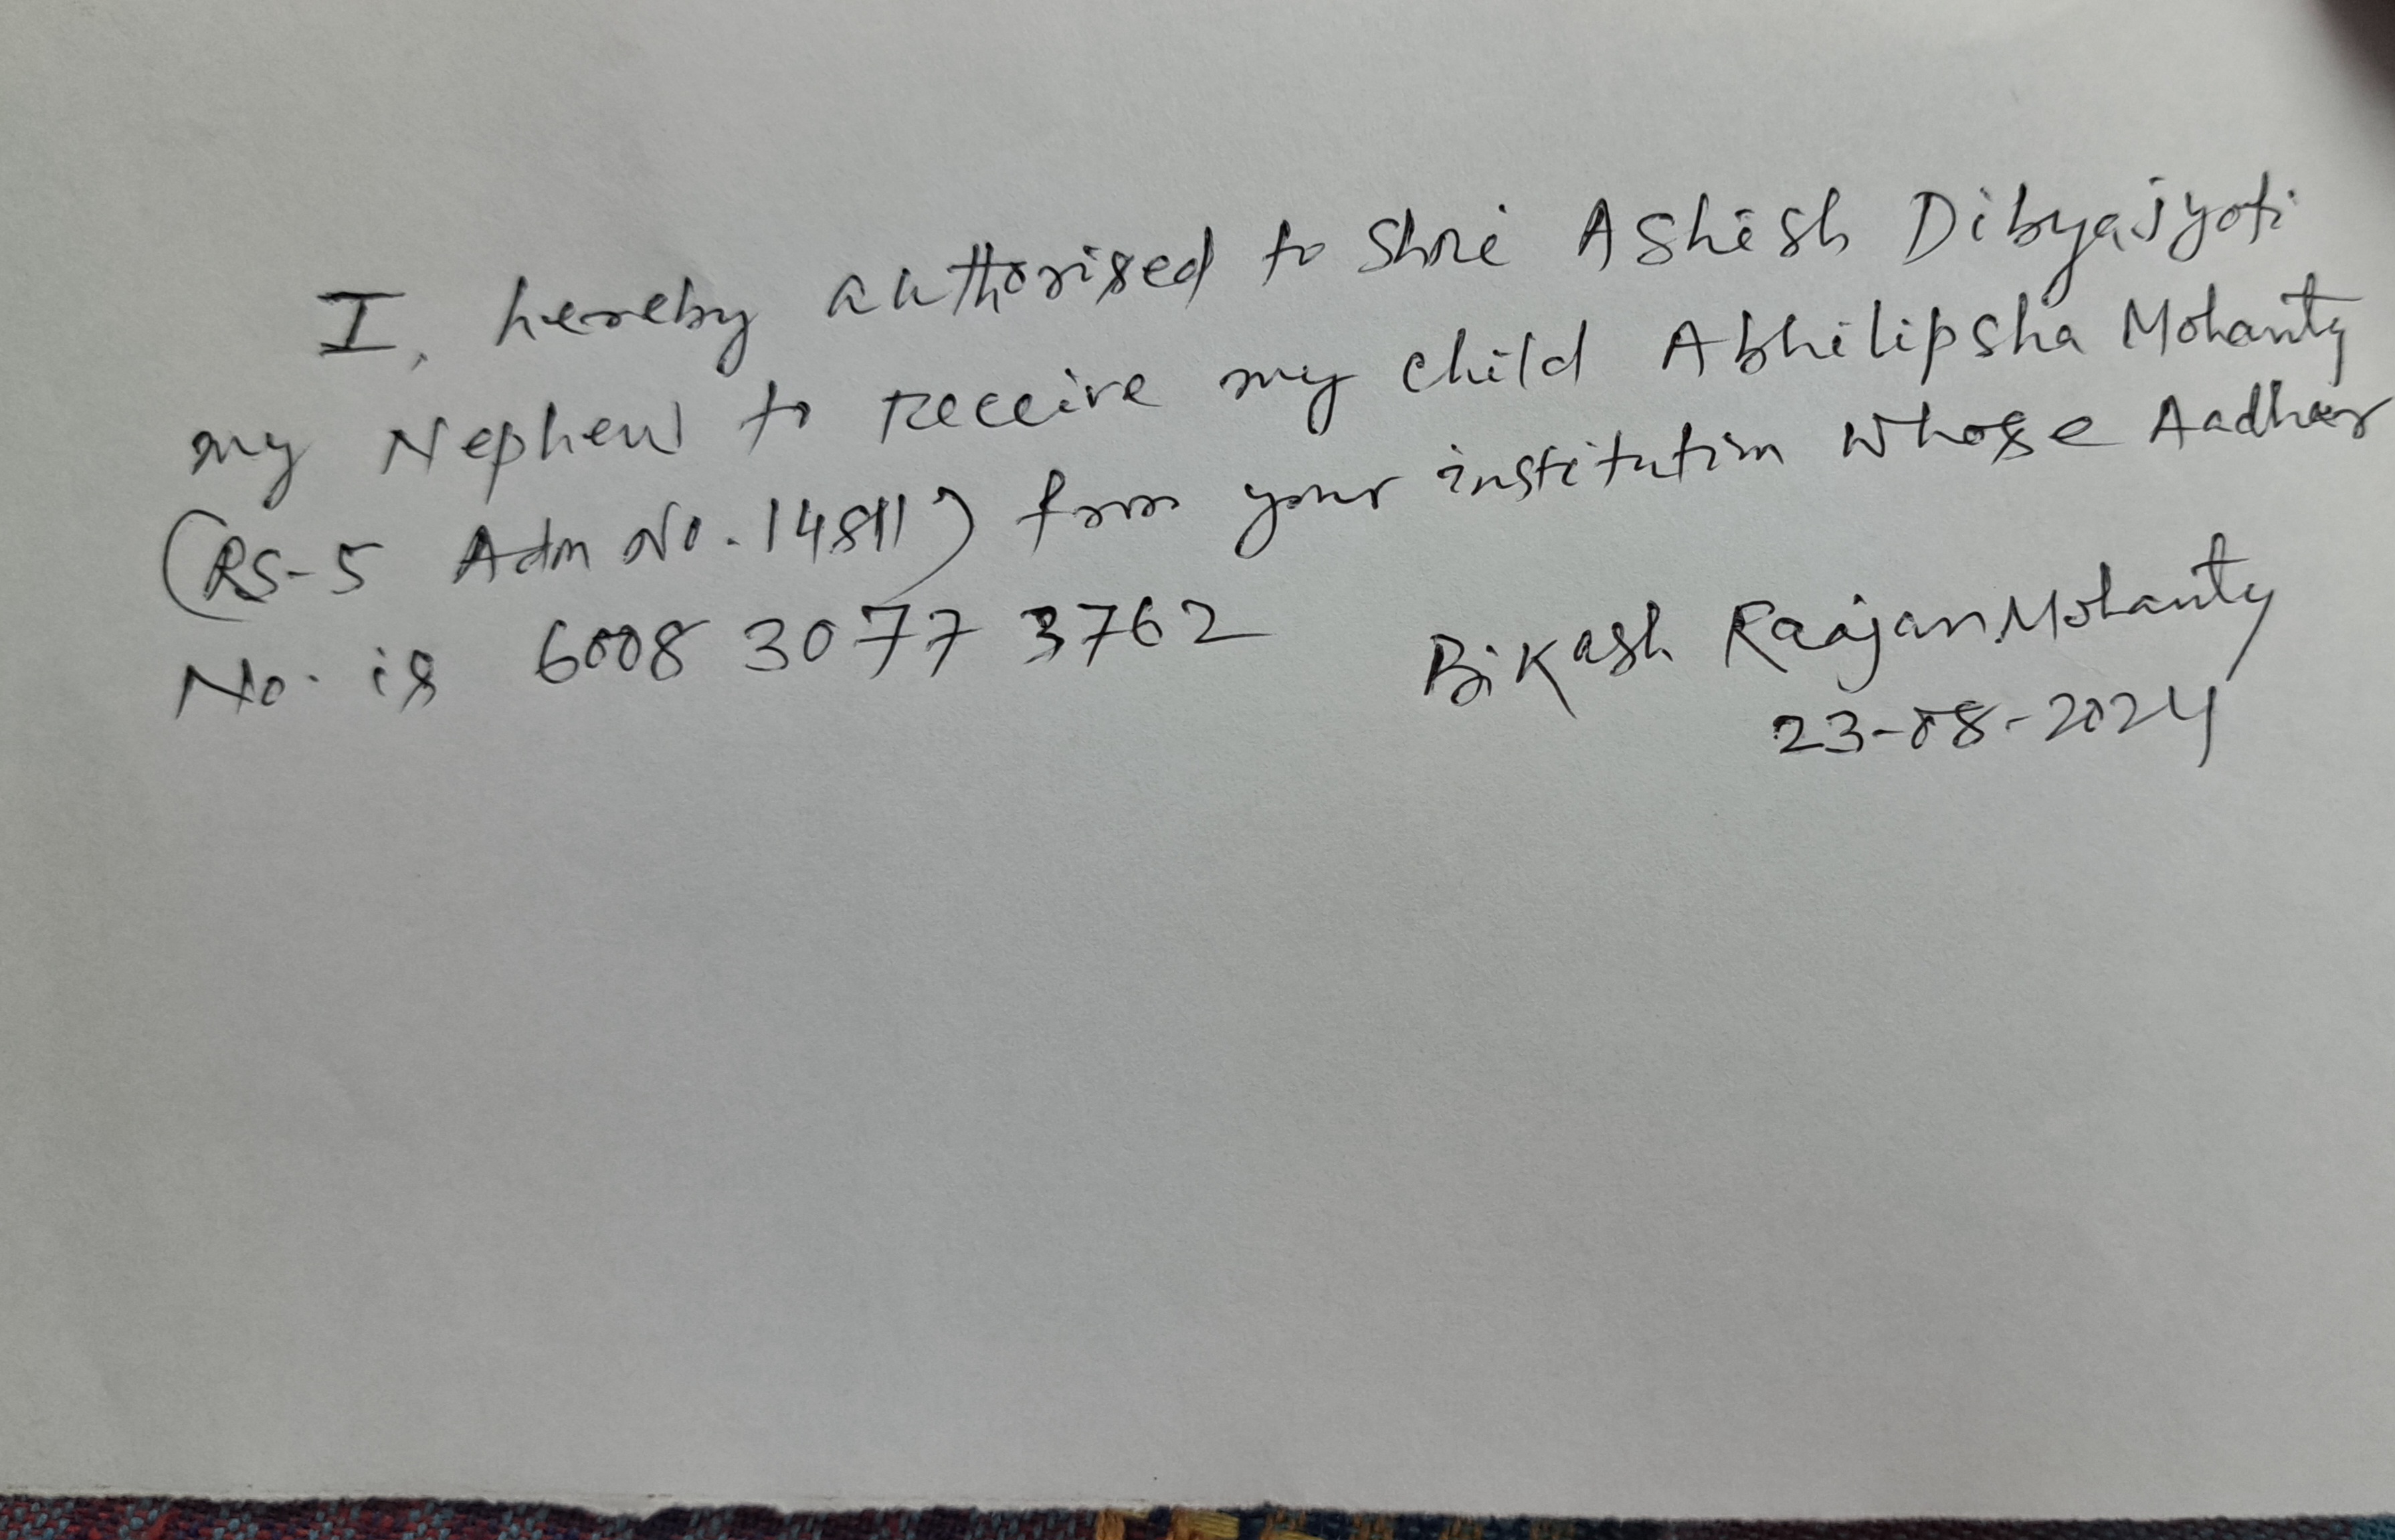 I, hereby authorised to Shri Ashish Dibyajyoti
my Nephew to receive my child Abhilipsha Mohanty
(RS-5 Adm No. 14811) from your institution whose Aadhar
No. is 6008 3077 3762
Bikash Raajan Mohanty
23-08-2024